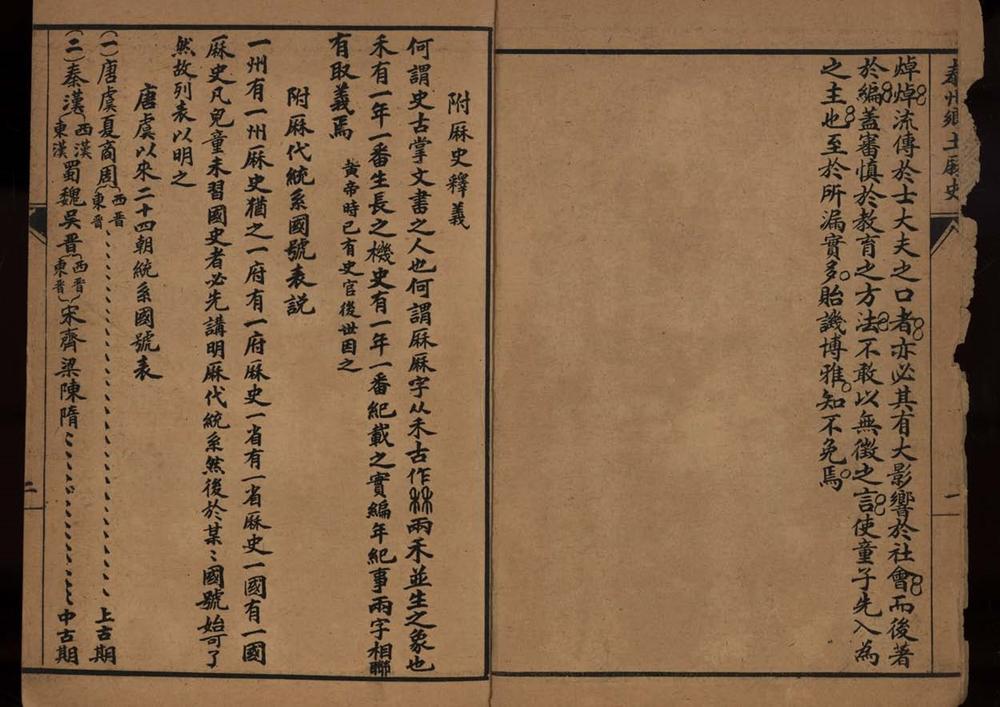 泰州鄉土厤史
一
焯焯流傳於士大夫之口者亦必其有大影響於社會而後著
於編蓋審慎於教育之方法不敢以無徵之言使童子先入為
之主也至於所漏實多貽譏博雅知不免焉
附厤史釋義
何謂史古掌文書之人也何謂厤厤字从禾古作秝兩禾並生之象也
禾有一年一番生長之機史有一年一番紀載之實編年紀事兩字相聯
有取義焉 黄帝時已有史官後世因之
附厤代統系國號表説
一州有一州厤史猶之一府有一府厤史一省有一省厤史一國有一國
厤史凡兒童未習國史者必先講明厤代統系然後於某〻國號始可了
然故列表以明之
唐虞以來二十四朝統系國號表
(一)唐虞夏商周(西晋東晋)、、、、、、上古期
(二)秦漢(西漢東漢)蜀魏吳晋(西晋東晋)宋齊梁陳隋、、、、、、中古期
二